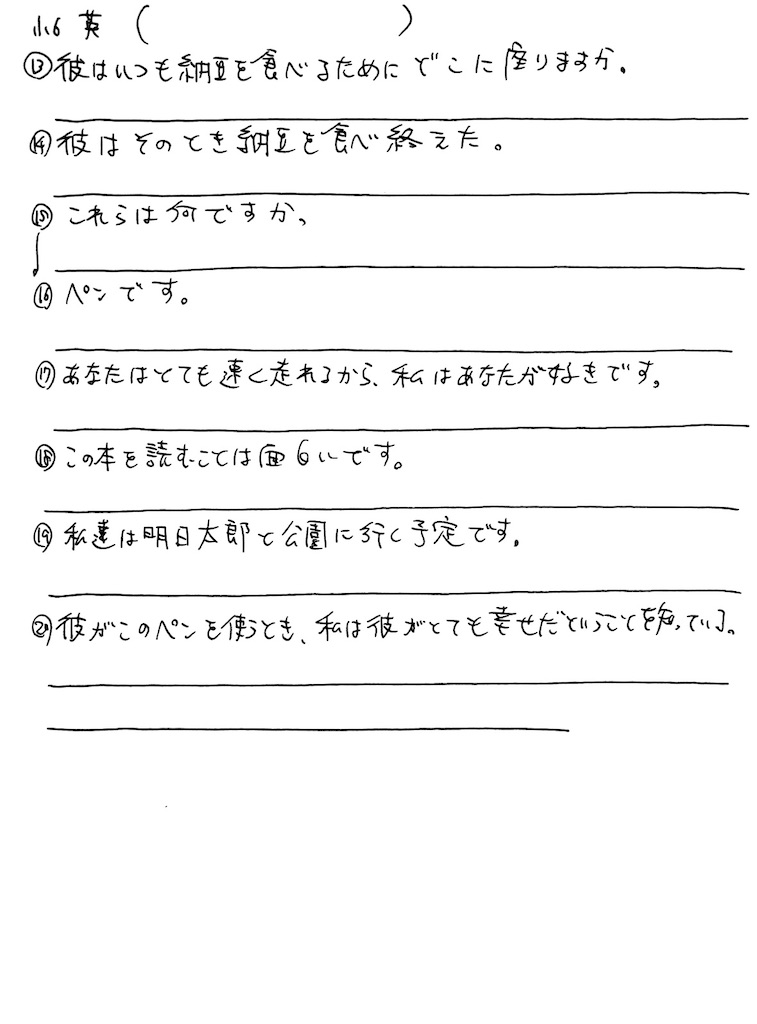 小6 英 (　　　　　)
⑬ 彼はいつも納豆を食べるためにどこに座りますか。
⑭ 彼はそのとき納豆を食べ終えた。
⑮ これらは何ですか。
⑯ ペンです。
⑰ あなたはとても速く走れるから、私はあなたが好きです。
⑱ この本を読むことは面白いです。
⑲ 私達は明日太郎と公園に行く予定です。
⑳ 彼がこのペンを使うとき、私は彼がとても幸せだということを知っている。